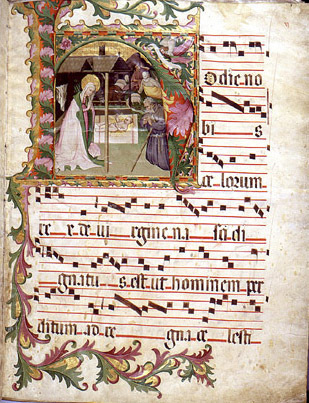 odie no
bi s
ce lorum
re x de ui rgine na sci di
gnatu s est ut hominem per
ditum ad re gna ce lesti